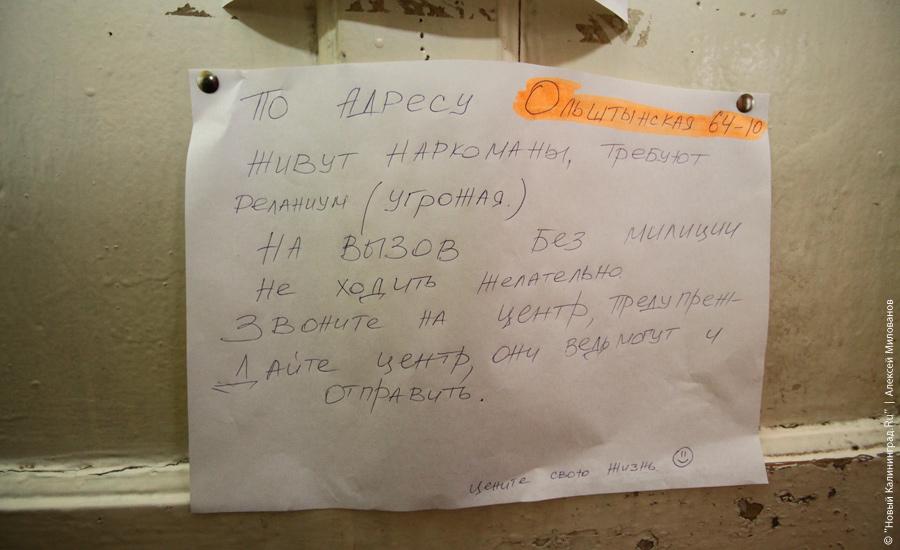 По адресу Ольштынская 64-10
живут наркоманы, требуют
реланиум (угрожая.)
На вызов без милиции
не ходить желательно
Звоните на центр, предупреж-
дайте центр, они ведь могут и
отправить.
цените свою жизнь ☺
© "Новый Калининград.Ru" | Алексей Милованов